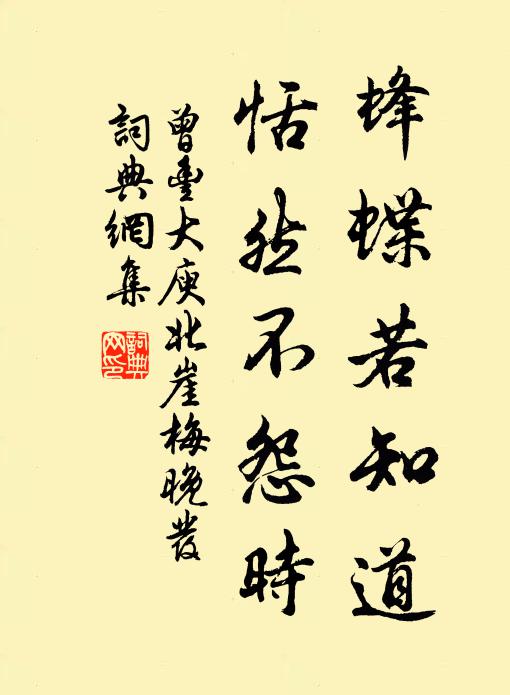 蜂蝶若知道
恬然不怨時
曾豐大庾北崖梅晚發
詞典網集
詞典
网印